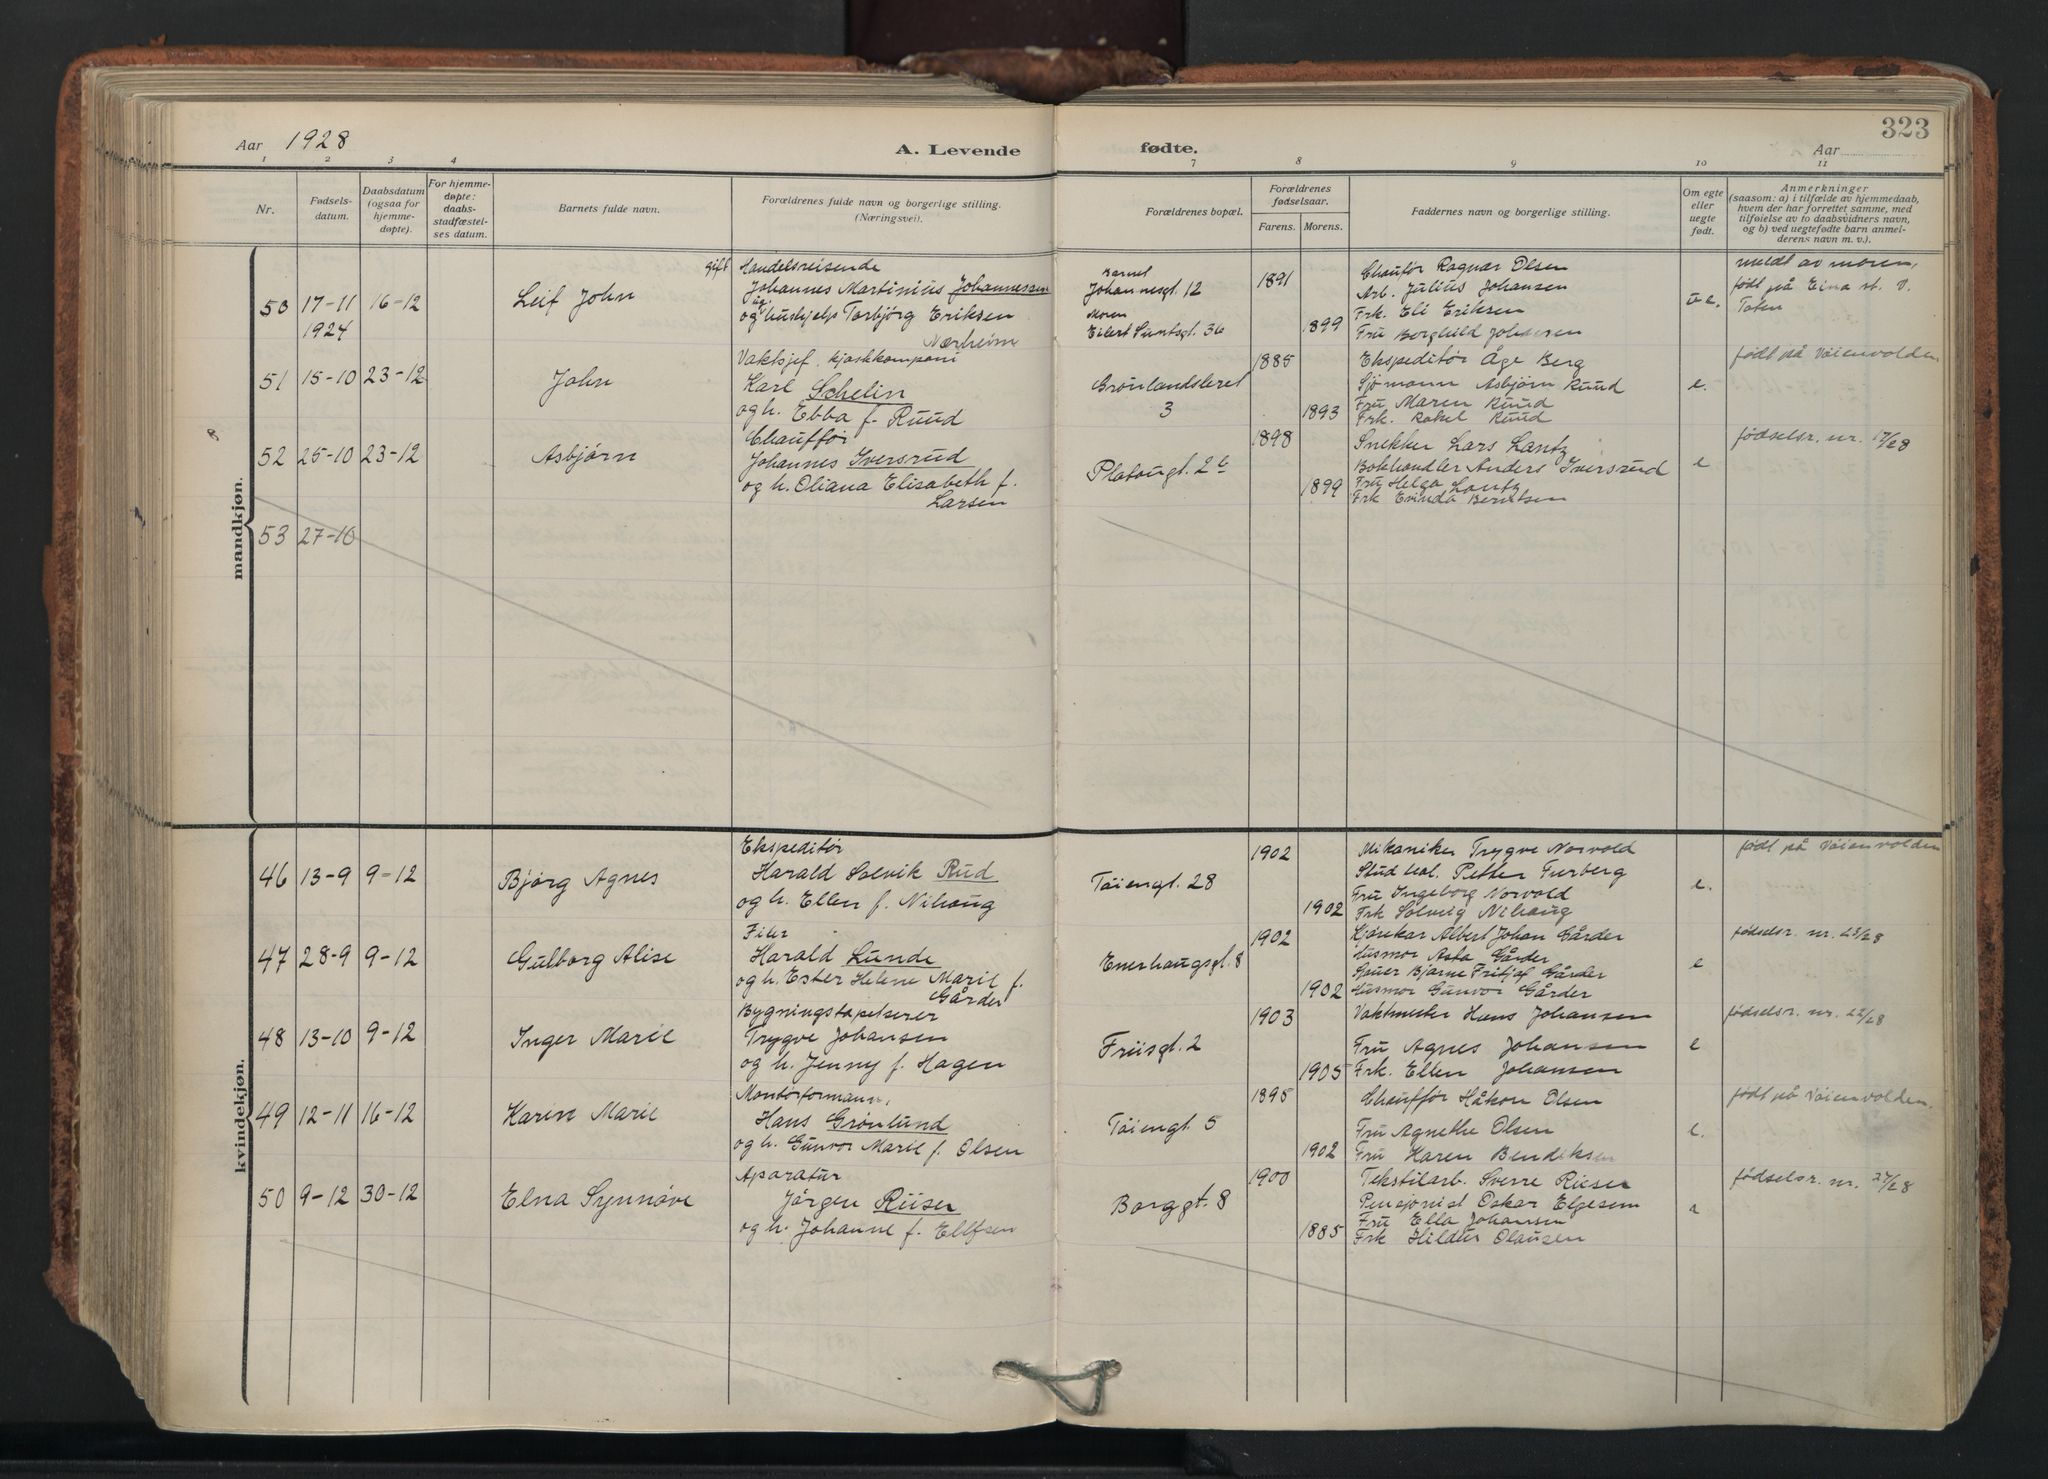 323
Aar 1928 A. Levende fødte. Aar
1 2 3 4 7 8 9 10 11
Nr.
Fødselsdatum.
Daabsdatum (ogsaa for hjemmedøpte).
For hjemmedøpte: daabsstadfæstelses datum.
Barnets fulde navn.
Forældrenes fulde navn og borgerlige stilling. (Næringsvei).
Forældrenes bopæl.
Forældrenes fødselsaar.
Farens. Morens.
Faddernes navn og borgerlige stilling.
Om egte eller uegte født.
Anmerkninger
(saasom: a) i tilfælde av hjemmedaab,
hvem der har forrettet samme, med
tilføielse av to daabsvidners navn,
og b) ved uegtefødte barn anmelderens navn m. v.).
mandkjøn.
50 17-11 1924 16-12 Leif John
gift Handelsreisende
Johannes Martinius Johannessen
og ug. hushjelp Torbjörg Eriksen
Nærheim
Barnet
Johannesgt. 12
Moren
Eilert Suntsgt. 36
1891
1899
Chauför Ragnar Olsen
Arb. Julius Johansen
Frk. Eli Eriksen
Fru Borghild Johansen
u e.
meldt av moren,
født på Eina st. V.
Toten
51 15-10 23-12 John
Vaktsjef, kjoskkompani
Karl Schelin
og h. Ebba f. Ruud
Grönlandsleret
3
1885
1893
Ekspeditör Åge Berg
Sjömann Asbjörn Ruud
Fru Maren Ruud
Frk. Rakel Ruud
e.
født på Vöienvolden
52 25-10 23-12 Asbjörn
Chaufför
Johannes Iversrud
og h. Oliana Elisabeth f.
Larsen
Platougt. 2b
1898
1899
Snekker Lars Lantz
Bokhandler Anders Iversrud
Fru Helga Lantz
Frk Evinda Berntsen
e
fødselsr. nr. 17/28
53 27-10
kvindekjøn.
46 13-9 9-12 Bjørg Agnes
Ekspeditör
Harald Solvik Rud
og h. Ellen f. Nihaug
Töiengt. 28
1902
1902
Mikaniker Trygve Norvold
Stud. Petter Furberg
Fru Ingeborg Norvold
Frk Solveig Nihaug
e.
født på Vöienvolden
47 28-9 9-12 Gulborg Alise
Filer
Harald Lunde
og h. Ester Helene Marie f.
Gårder
Enerhaugsgt. 8
1902
1902
Kjörekar Albert Johan Gårder
Husmor Asta Gårder
Bjarne Fritjof Gårder
Husmor Gunvor Gårder
e
fødselsr. nr. 23/28
48 13-10 9-12 Inger Marie
Bygningstapetserer
Trygve Johansen
og h. Jenny f. Hagen
Friisgt. 2
1903
1905
Vaktmester Hans Johansen
Fru Agnes Johansen
Frk. Ellen Johansen
e
fødselsr. nr. 22/28
49 12-11 16-12 Karin Marie
Montörformann,
Hans Grönlund
og h. Gunvor Marie f. Olsen
Töiengt. 5
1895
1902
Chaufför Håkon Olsen
Fru Agnethe Olsen
Fru Karen Bendiksen
e.
født på Vöienvolden.
50 9-12 30-12 Elna Synnöve
Aparatur
Jörgen Riiser
og h. Johanne f. Ellefsen
Borggt. 8
1900
1885
Tekstilarb. Sverre Rieser
Pensjonist Oskar Elgesem
Fru Ella Johansen
Frk Hildur Olausen
e
fødselsr. nr. 27/28